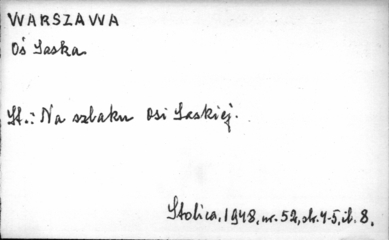 WARSZAWA
Oś Saska
St.: Na szlaku Osi Saskiej.
Stolica, 1948, nr. 52, str. 4-5, il. 8.